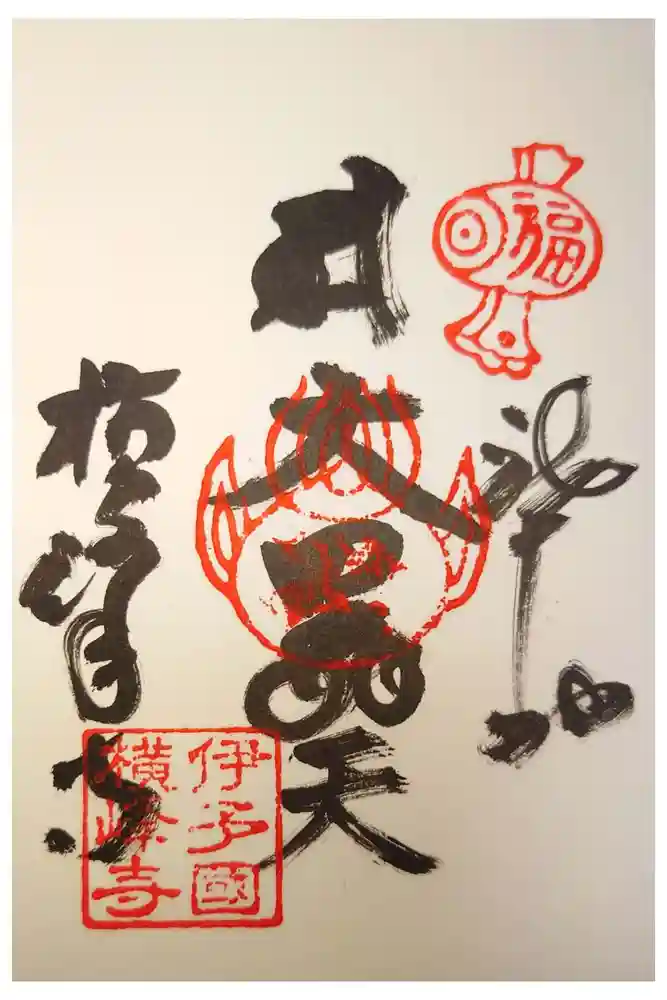 福
奉拝
大黒天
横峰寺
伊予國
横峰寺